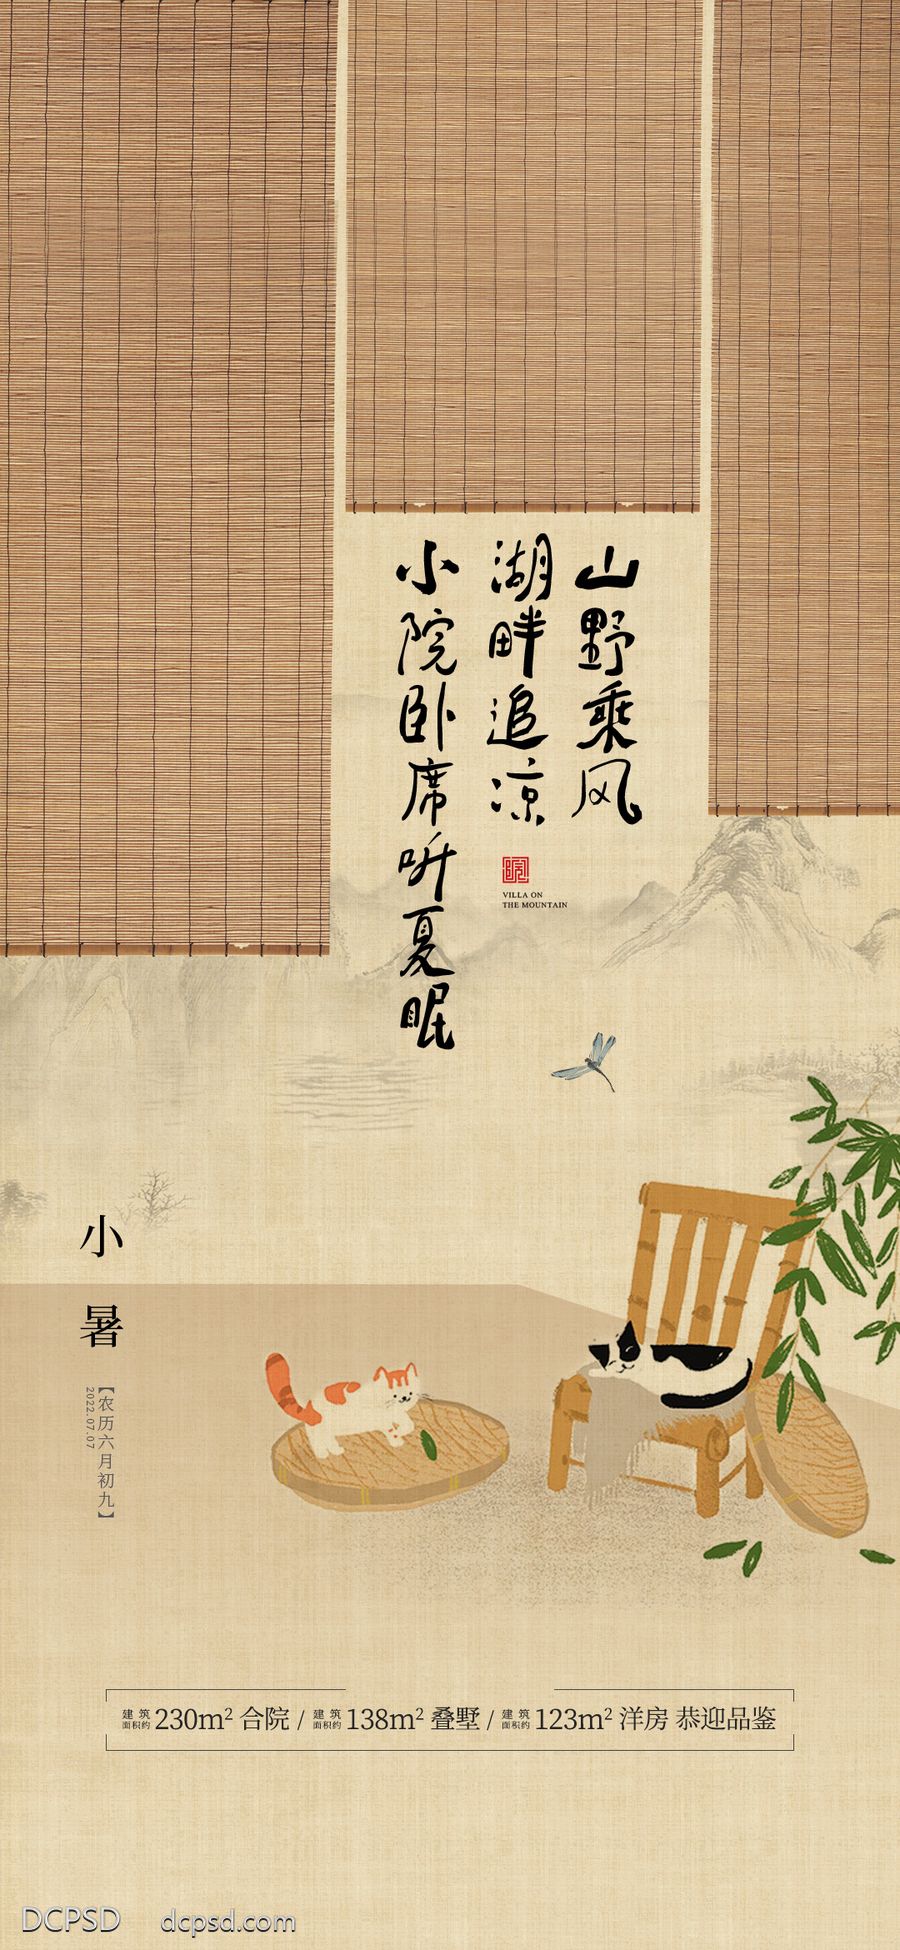 山野乘风
湖畔追凉
小院卧席听夏眠
院
VILLA ON
THE MOUNTAIN
小暑
【农历六月初九】
2022.07.07
建筑面积约230m² 合院 / 建筑面积约138m² 叠墅 / 建筑面积约123m² 洋房 恭迎品鉴
DCPSD dcpsd.com